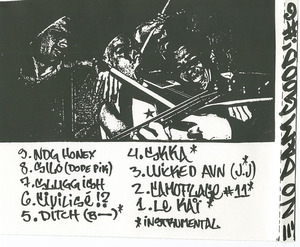 9. NDG HONEX
8. SILÓ (DOPE PIK)
7. SLUGGISH
6. CIVILISÉ!?
5. DITCH (B—)*
4. SKKA*
3. WICKED AVN (J.J)
2. CAMOFLAGE #11*
1. LE KAÏ*
*INSTRUMENTAL
NO DAM